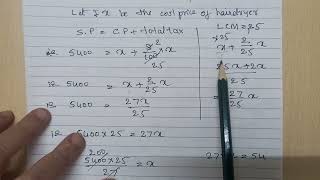 Let ₹ x be the cost price of hairdryer
S.P = C.P + total tax
ie 5400 = x + 8/100 × x
25
ie 5400 = x + 2/25 x
ie 5400 = 27x/25
ie 5400×25 = 27x
200
5400×25/27 = x
LCM = 25
×25
x + 2/25 x
25x + 2x
25
= 27x/25
27×2 = 54